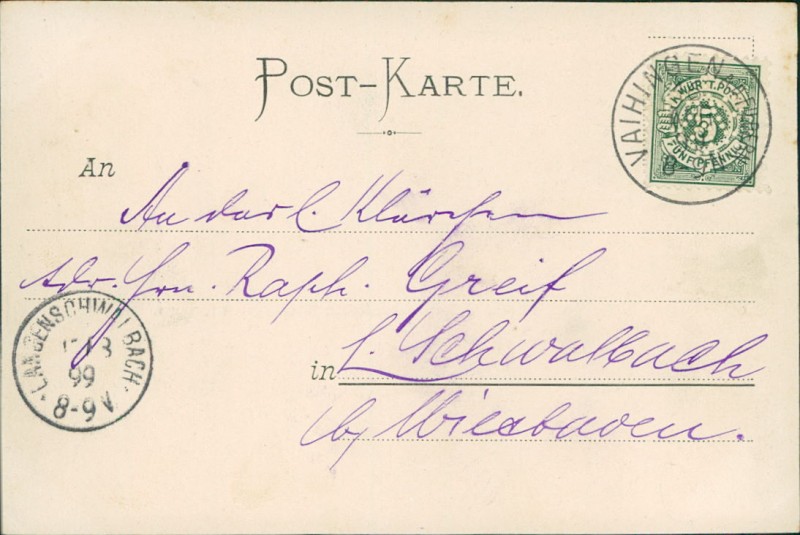 POST-KARTE.
VAIHINGEN
K. WÜRTT. POST
5
FÜNF PFENNIG
An
An das l. Klärchen
Adr. Hrn. Raph. Greif
LANGENSCHWALBACH
99
8-9V
in L. Schwalbach
b/ Wiesbaden.